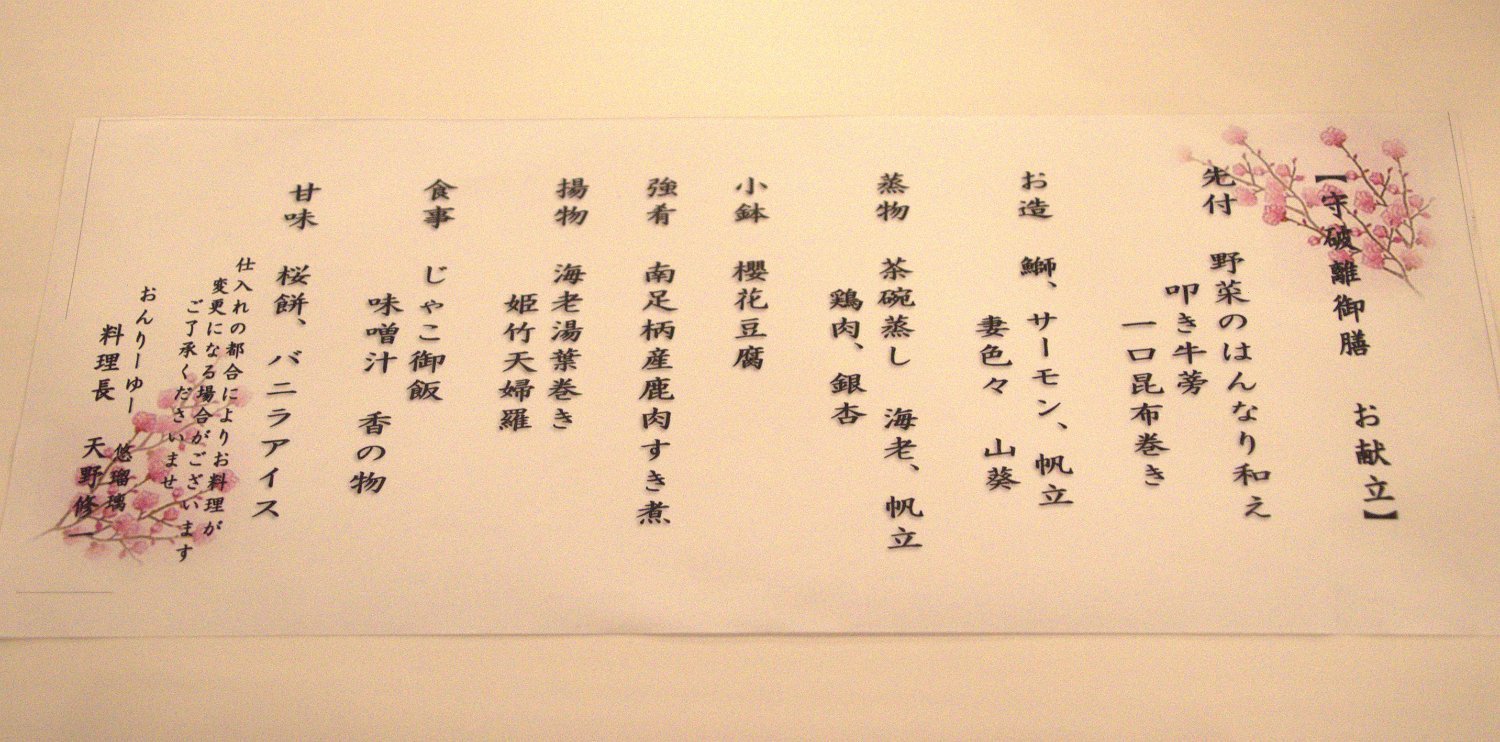 【守破離御膳　お献立】
先付　野菜のはんなり和え
叩き牛蒡
一口昆布巻き
お造　鰤、サーモン、帆立
妻色々　山葵
蒸物　茶碗蒸し　海老、帆立
鶏肉、銀杏
小鉢　櫻花豆腐
強肴　南足柄産鹿肉すき煮
揚物　海老湯葉巻き
姫竹天婦羅
食事　じゃこ御飯
味噌汁　香の物
甘味　桜餅、バニラアイス
仕入れの都合によりお料理が
変更になる場合がございます
ご了承くださいませ
おんりーゆー　悠瑠璃
料理長　天野修一